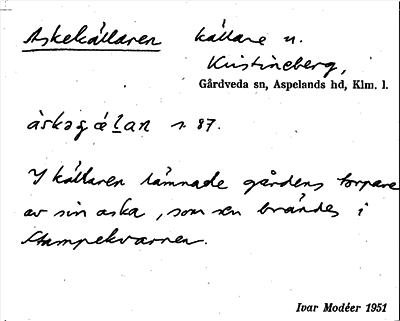 Askekällaren källare u.
Kristineberg,
Gårdveda sn, Aspelands hd, Klm. l.
s. 87.
I källaren lämnade gårdens torpare
av sin aska, som sen brändes i
Stampekvarnen.
Ivar Modéer 1951